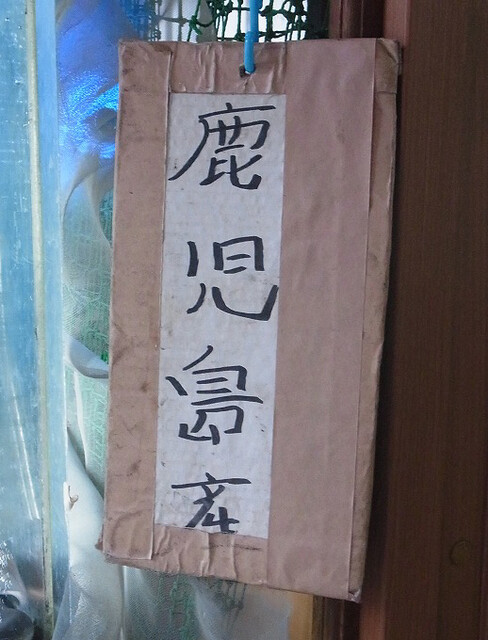 鹿児島産